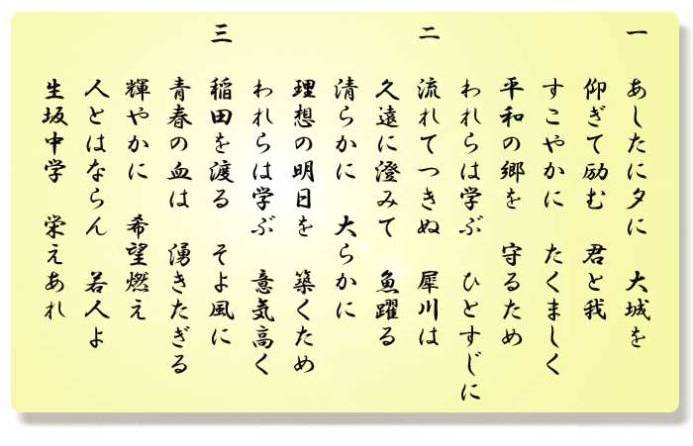 一 あしたに夕に 大城を
仰ぎて励む 君と我
すこやかに たくましく
平和の郷を 守るため
われらは学ぶ ひとすじに
二 流れてつきぬ 犀川は
久遠に澄みて 魚躍る
清らかに 大らかに
理想の明日を 築くため
われらは学ぶ 意気高く
三 稲田を渡る そよ風に
青春の血は 湧きたぎる
輝やかに 希望燃え
人とはならん 若人よ
生坂中学 栄えあれ